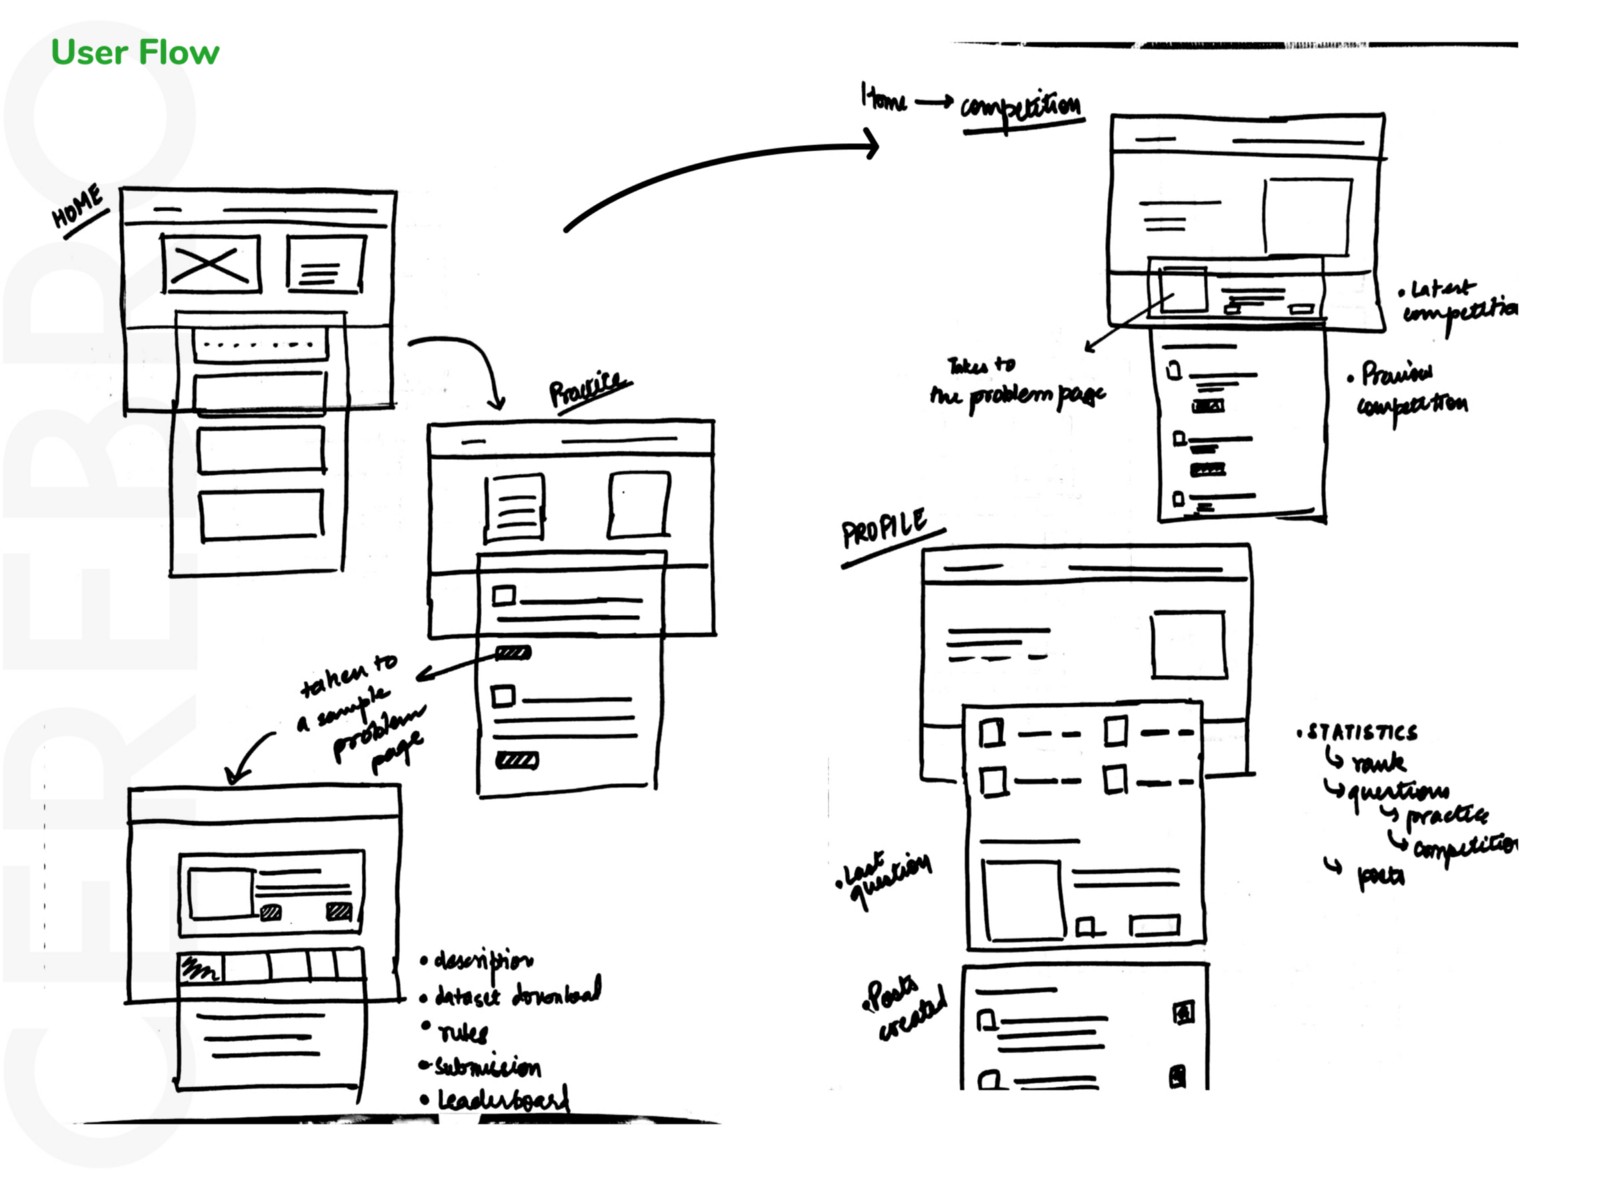 CEREBRO
User Flow
HOME
Practice
taken to
a sample
problem
page
• description
• dataset download
• rules
• submission
• Leaderboard
Home → competition
• Latest
competitio
Takes to
the problem page
• Previous
competition
PROFILE
• STATISTICS
↳ rank
↳ questions
↳ practice
↳ competition
↳ posts
• Last
question
• Posts
created